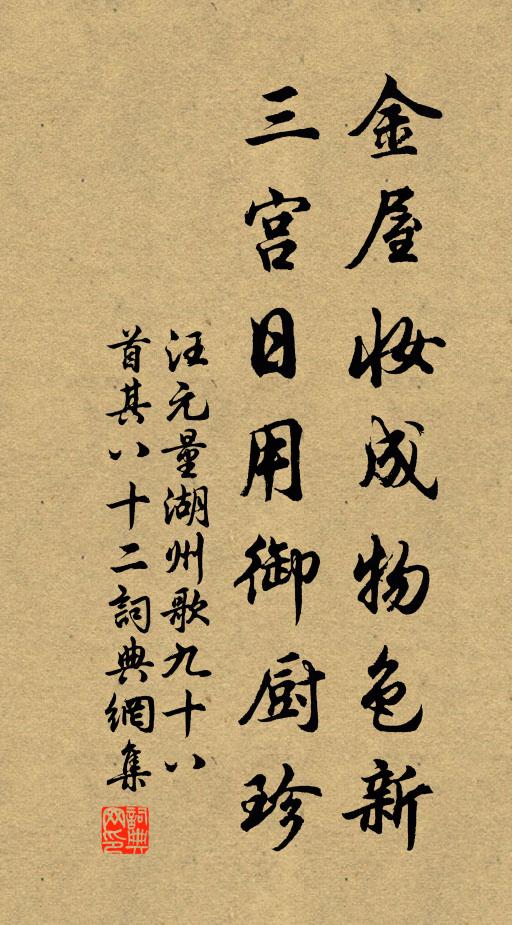 金屋妆成物色新
三宫日用御厨珍
汪元量湖州歌九十八
首其八十二詞典網集
詞典网印